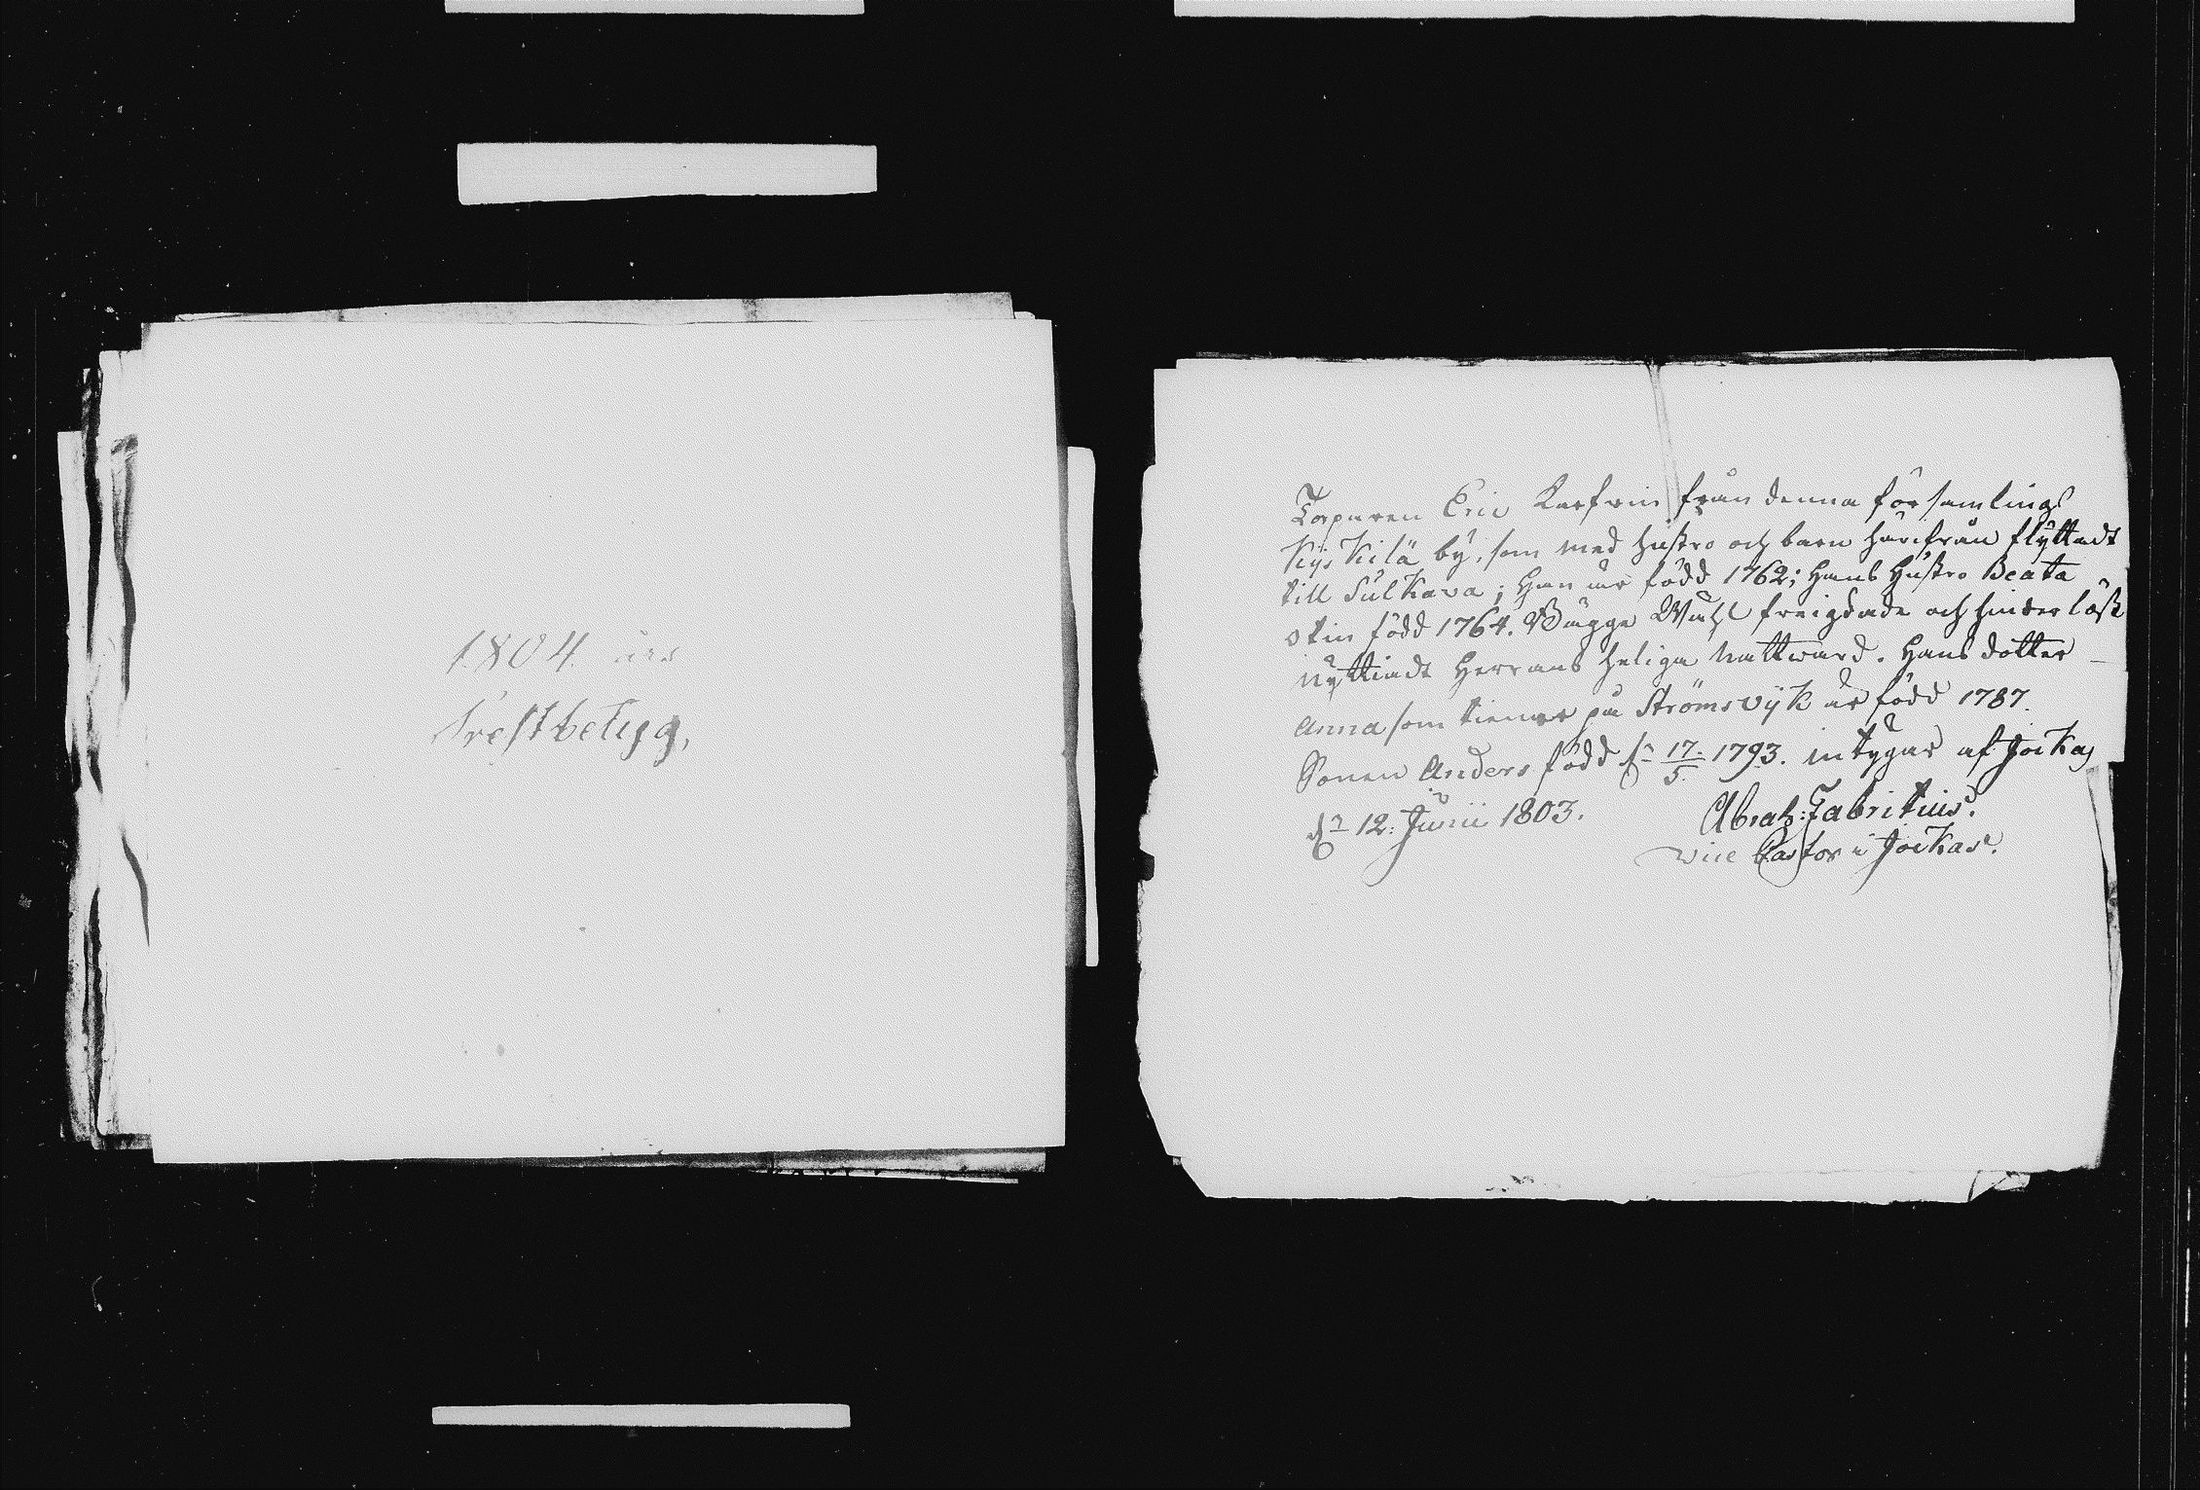 1804 års
Prestbetyg,
Torparen Eric Karfvin från denna församlings
Kyskilä by, som med hustro och barn härifrån flÿttadt
till Sulkava; Han är född 1762; Hans Hustro Beata
otin född 1764. Bägge Wähl freigdade och hinderlöst
nyttiadt Herrans heliga Nattward. Hans dotter
Anna som tienar på Strömsvÿk är född 1787.
Sonen Anders född dn 17/5 1793. intygar af Jockas
dn 12: Junii 1803. Abrah: Fabritius.
vice Pastor i Jockas.